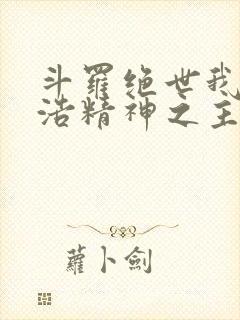 斗羅绝世我
浩精神之主
蘿卜劍